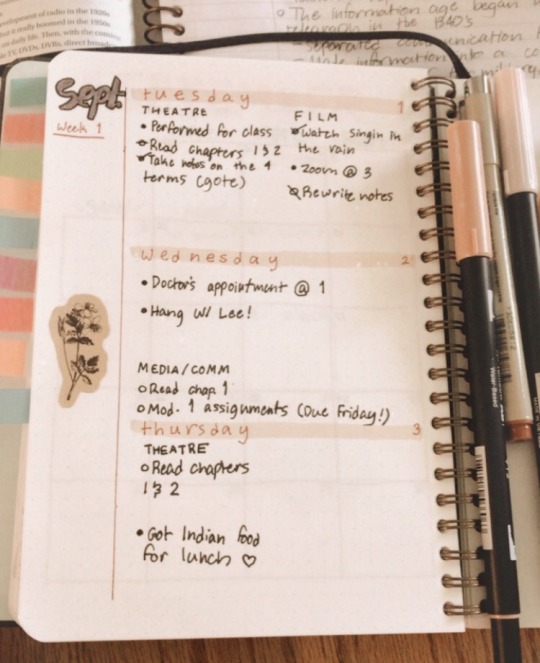 development of radio in the 1920s
that it really boomed in the 1950s
TV, DVDs, DVRs, direct
The information age began
telegraph in the 1840's
separated communication
Sept.
Week 1
tuesday 1
THEATRE
• Performed for class
Read chapters 1 & 2
Take notes on the 4
terms (gote)
FILM
Watch Singin in
the rain
• Zoom @ 3
Rewrite notes
wednesday 2
• Doctor's appointment @ 1
• Hang w/ Lee!
MEDIA/COMM
○ Read chap. 1
○ Mod. 1 assignments (Due Friday!)
thursday 3
THEATRE
○ Read chapters
1 & 2
• Got Indian food
for lunch ♡